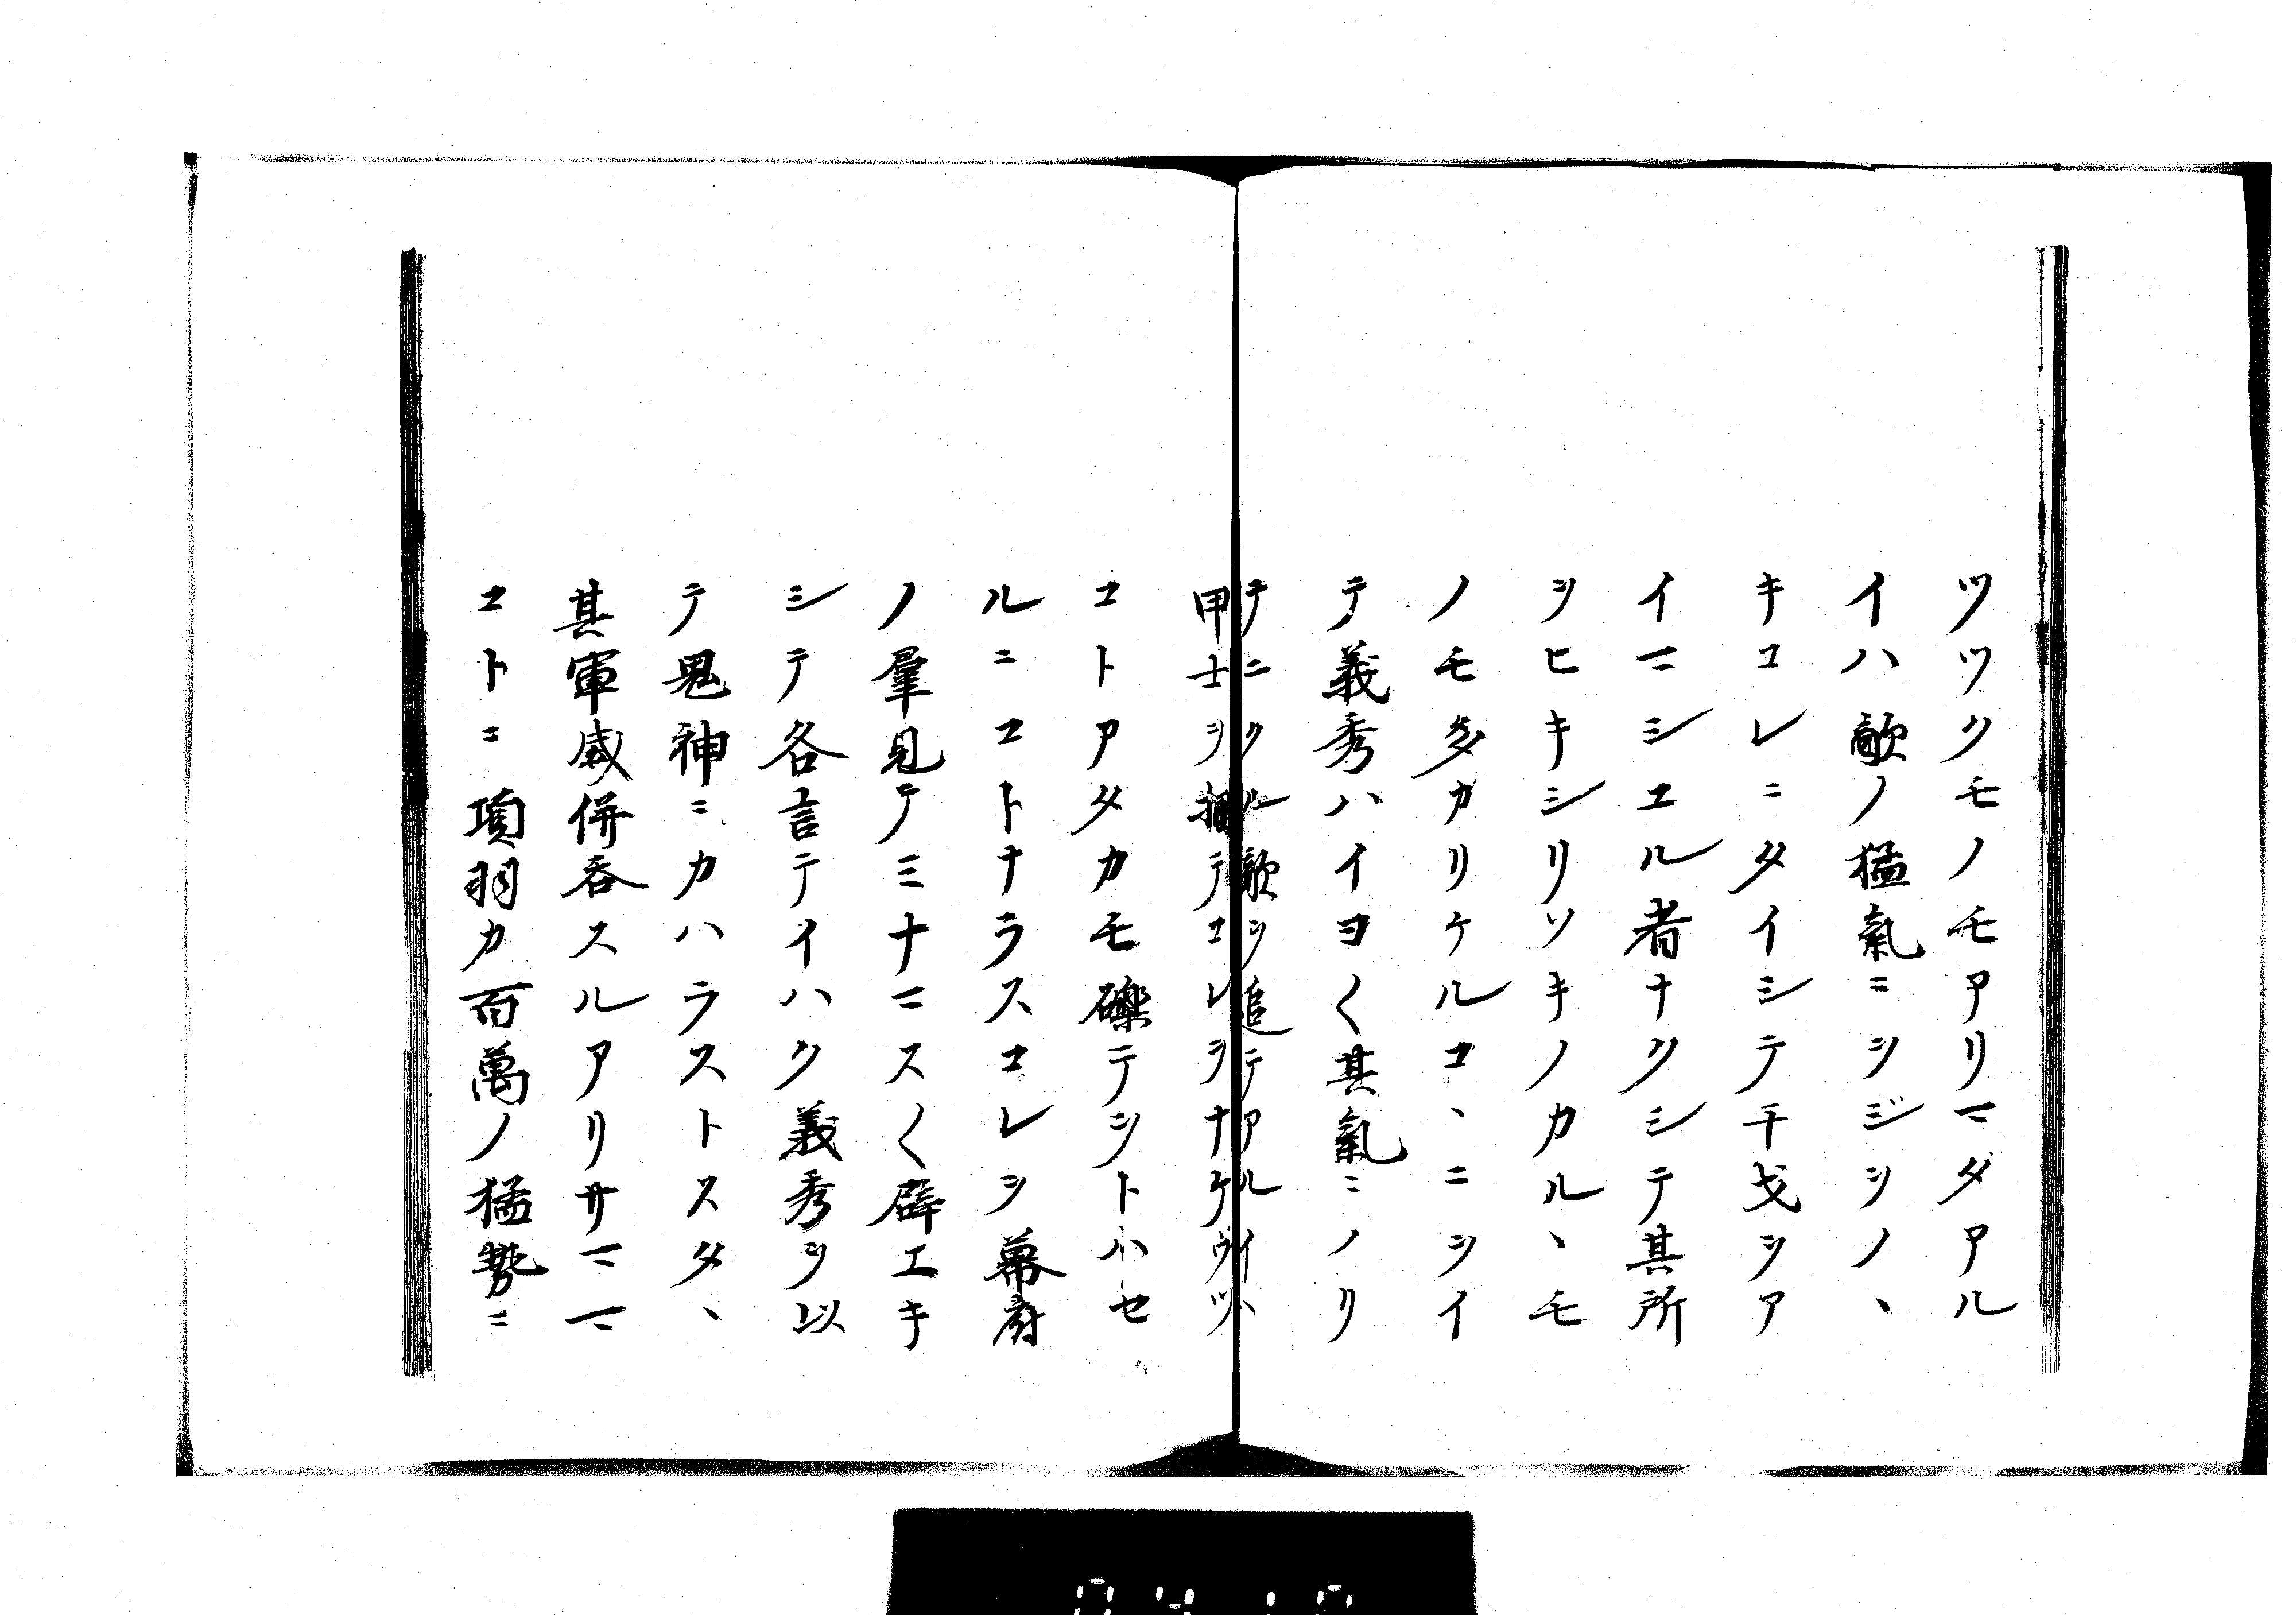 ツツクモノモアリマタアル
イハ敵ノ猛氣ニヲジヲノヽ
キコレニタイシテ干戈ヲア
イマシエル者ナクシテ其所
ヲヒキシリソキノカルヽモ
ノモ多カリケルコヽニヲイ
テ義秀ハイヨ〱其氣ニノリ
テニクル敵ヲ追テアルイハ
甲士ヲ テコレヲナケウツ
コトアタカモ礫テヲトハセ
ルニコトナラスコレヲ幕府
ノ羣見テミナマス〱辟エキ
シテ各言テイハク義秀ヲ以
テ鬼神ニカハラストスタヽ
其軍威併呑スルアリサママ
コトニ項羽カ百萬ノ猛勢ニ